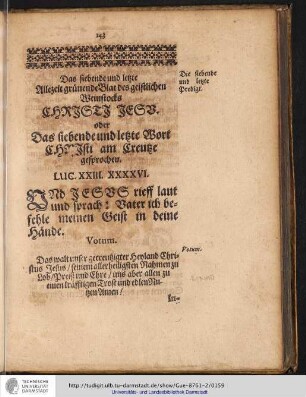 143
Das siebende und letzte
Allezeit grünende Blat des geistlichen
Weinstocks
CHRISTI JESU.
oder
Das siebende und letzte Wort
CHristi am Creutze
gesprochen.
LUC. XXIII. XXXXVI.
UNd JESUS rieff laut
und sprach: Vater ich be-
fehle meinen Geist in deine
Hände.
Votum.
Das walt unser gecreutzigter Heyland Chri-
stus Jesus / seinem allerheiligsten Nahmen zu
Lob / Preiß und Ehre / uns aber allen zu
einen kräfftigen Trost und edlen Nu-
tzen Amen /
Die siebende
und letzte
Predigt.
Votum.
TECHNISCHE
UNIVERSITÄT
DARMSTADT
http://tudigit.ulb.tu-darmstadt.de/show/Gue-8761-2/0159
Universitäts- und Landesbibliothek Darmstadt